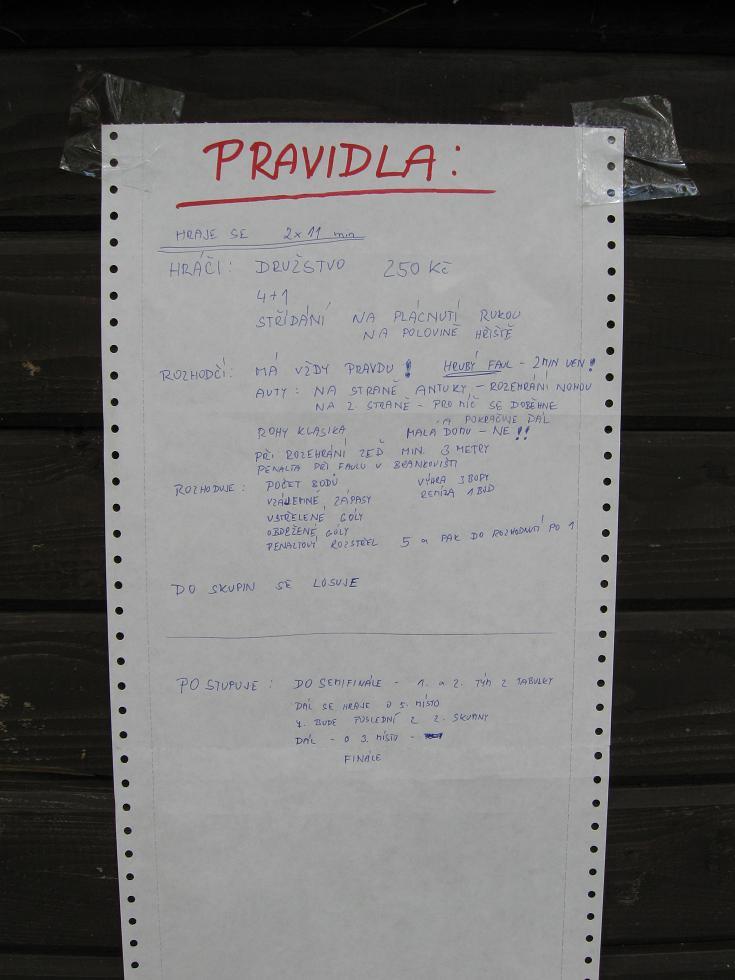 PRAVIDLA:
HRAJE SE 2x11 min
HRÁČI: DRUŽSTVO 250 Kč
4+1
STŘÍDÁNÍ NA PLÁCNUTÍ RUKOU
NA POLOVINĚ HŘIŠTĚ
ROZHODČÍ: MÁ VŽDY PRAVDU! HRUBÝ FAUL - 2MIN VEN!
AUTY: NA STRANĚ ANTUKY - ROZEHRÁNÍ NOHOU
NA 2. STRANĚ - PRO MÍČ SE DOBĚHNE
A POKRAČUJE DÁL
ROHY KLASIKA MALÁ DOMŮ - NE!!
PŘI ROZEHRÁNÍ ZEĎ MIN. 3 METRY
PENALTA PŘI FAULU V BRANKOVIŠTI
ROZHODUJE: POČET BODŮ VÝHRA 3 BODY
VZÁJEMNÉ ZÁPASY REMÍZA 1 BOD
VSTŘELENÉ GÓLY
OBDRŽENÉ GÓLY
PENALTOVÝ ROZSTŘEL 5 a PAK DO ROZHODNUTÍ PO 1
DO SKUPIN SE LOSUJE
POSTUPUJE: DO SEMIFINÁLE - 1. a 2. TÝM Z TABULKY
DÁL SE HRAJE O 5. MÍSTO
7. BUDE POSLEDNÍ Z 2. SKUPINY
DÁL - O 3. MÍSTO -
FINÁLE